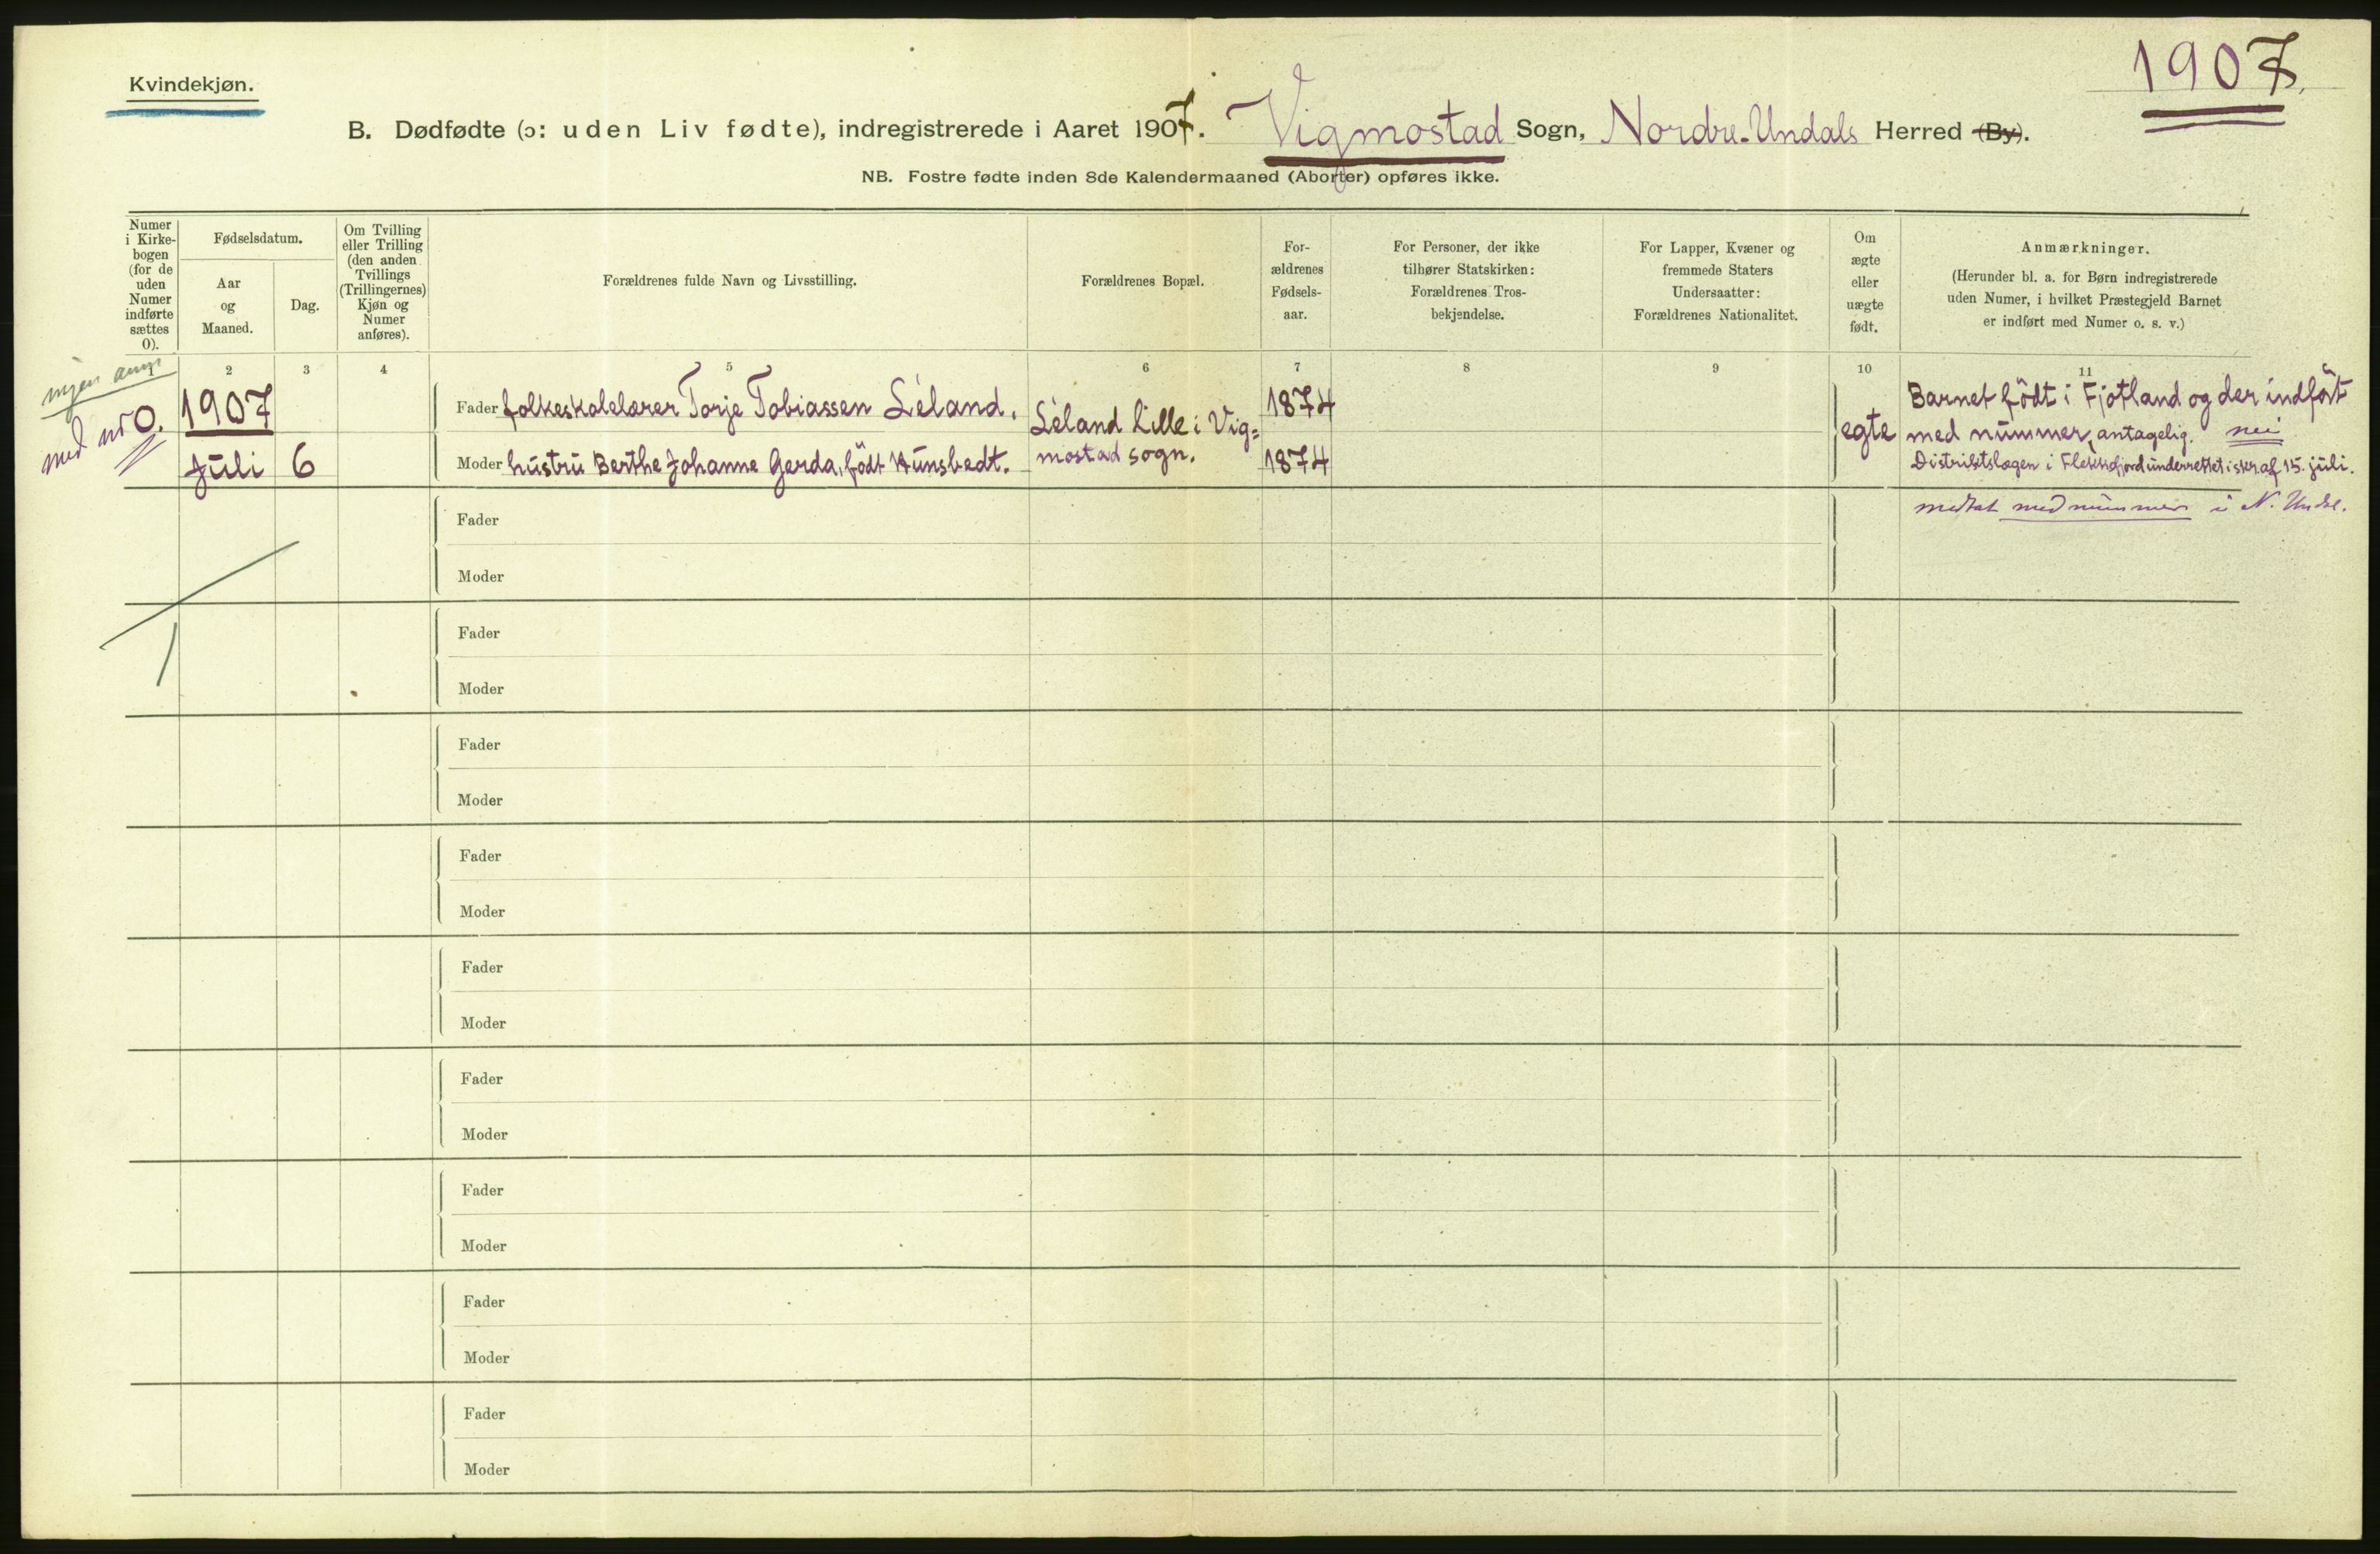 1907.
Kvindekjøn.
B. Dødfødte (ɔ: uden Liv fødte), indregistrerede i Aaret 1907. Vigmostad Sogn, Nordre-Undals Herred (By).
NB. Fostre fødte inden 8de Kalendermaaned (Aborter) opføres ikke.
Numer
i Kirke-
bogen
(for de
uden
Numer
indførte
sættes
0).
Fødselsdatum.
Aar
og
Maaned.
Dag.
Om Tvilling
eller Trilling
(den anden
Tvillings
(Trillingernes)
Kjøn og
Numer
anføres).
Forældrenes fulde Navn og Livsstilling.
Forældrenes Bopæl.
For-
ældrenes
Fødsels-
aar.
For Personer, der ikke
tilhører Statskirken:
Forældrenes Tros-
bekjendelse.
For Lapper, Kvæner og
fremmede Staters
Undersaatter:
Forældrenes Nationalitet.
Om
ægte
eller
uægte
født.
Anmærkninger.
(Herunder bl. a. for Børn indregistrerede
uden Numer, i hvilket Præstegjeld Barnet
er indført med Numer o. s. v.)
1 2 3 4 5 6 7 8 9 10 11
med nr 0.
1907
Juli 6
Fader folkeskolelærer Torje Tobiassen Léland.
Moder hustru Berthe Johanne Gerda, født Kunsbedt.
Léland Lille i Vig=
mostad sogn.
1874
1874
egte
Barnet födt i Fjotland og der indfört
med nummer, antagelig. nei
Distriktslægen i Flekkefjord underrettet i skr. af 15. juli.
medtat med nummer i N. Undal.
Fader
Moder
Fader
Moder
Fader
Moder
Fader
Moder
Fader
Moder
Fader
Moder
Fader
Moder
Fader
Moder
Fader
Moder